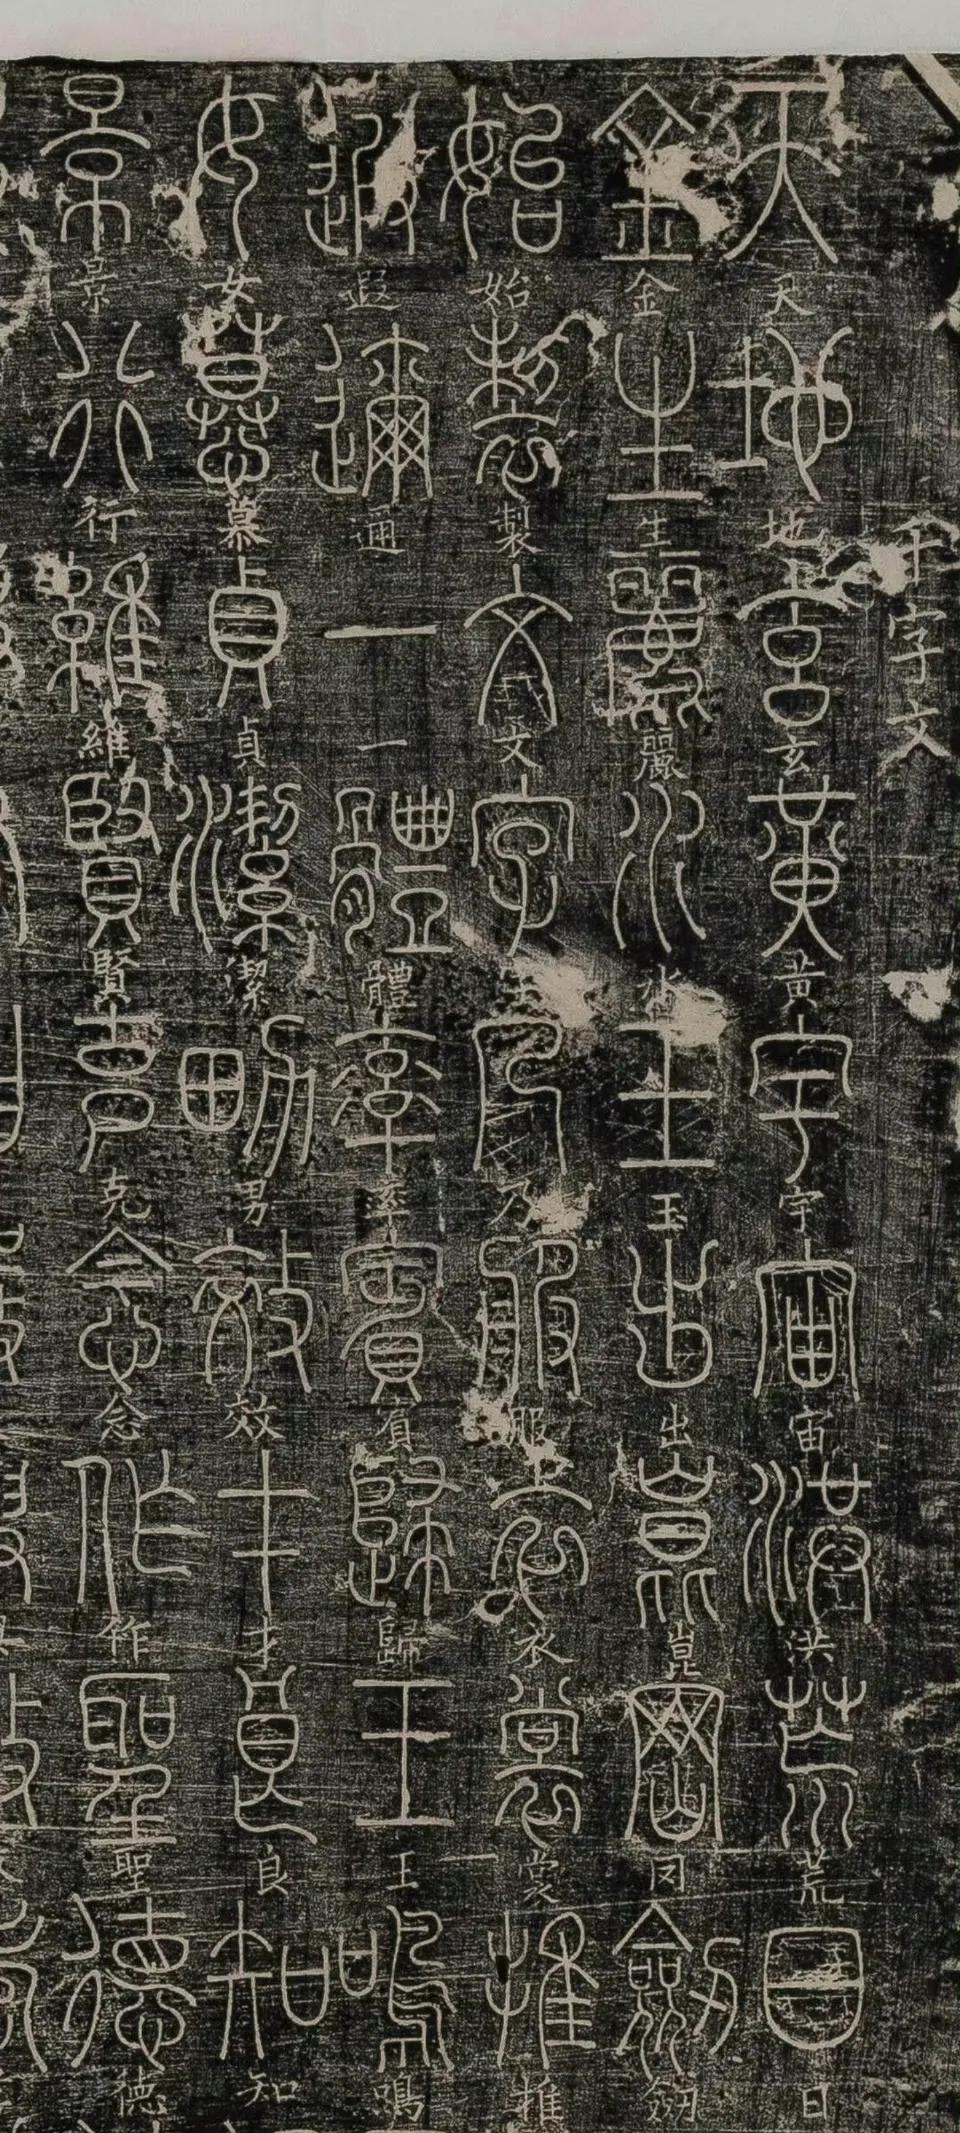 千字文
天地玄黃宇宙洪荒日
金生麗水玉出崑岡劒
始製文字乃服衣裳推
遐邇一體率賓歸王鳴
女慕貞潔男效才良知
景行維賢克念作聖德